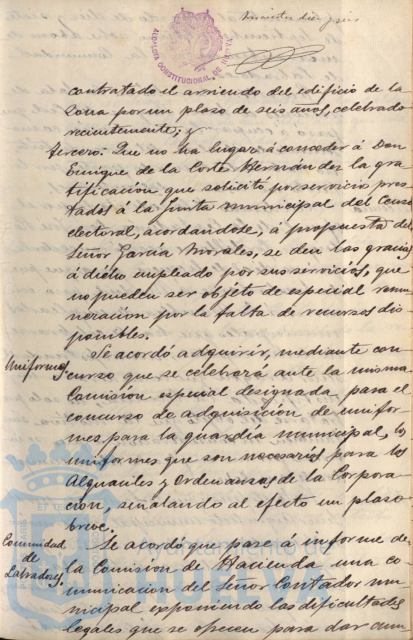 doscientos diez y seis
ALCALDIA CONSTITUCIONAL DE HUELVA
contratado el arriendo del edificio de la
Zona por un plazo de seis años, celebrado
recientemente; y
tercero: Que no ha lugar á conceder á Don
Enrique de la Corte Hernández la gra-
tificación que solicitó por servicios pres-
tados á la Junta municipal del Censo
electoral, acordándose, á propuesta del
Señor García Morales, se den las gracias
á dicho empleado por sus servicios, que
no pueden ser objeto de especial remu-
neración por la falta de recursos dis-
ponibles.
Uniformes
Se acordó adquirir, mediante con-
curso que se celebrará ante la misma
Comisión especial designada para el
concurso de adquisición de unifor-
mes para la guardia municipal, los
uniformes que son necesarios para los
Alguaciles y Ordenanzas de la Corpora-
ción, señalando al efecto un plazo
breve.
Comunidad
de
Labradores.
Se acordó que pase á informe de
la Comisión de Hacienda una co-
municación del Señor Contador mu-
nicipal exponiendo las dificultades
legales que se ofrecen para dar cum